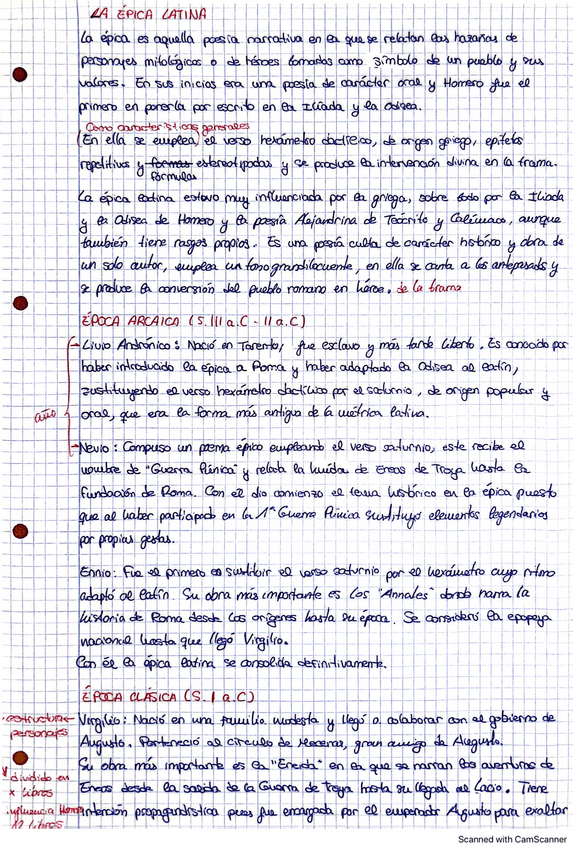 LA ÉPICA LATINA
La épica es aquella poesía narrativa en la que se relatan las hazañas de
personajes mitológicos o de héroes tomados como símbolo de un pueblo y sus
valores. En sus inicios era una poesía de carácter oral y Homero fue el
primero en ponerla por escrito en la Ilíada y la Odisea.
Como características generales
En ella se emplea el verso hexámetro dactílico, de origen griego, epítetos
repetitivos y formas estereotipadas y se produce la intervención divina en la trama.
fórmulas
La épica latina estavo muy influenciada por la griega, sobre todo por la Ilíada
y la Odisea de Homero y la poesía Alejandrina de Teócrito y Calímaco, aunque
también tiene rasgos propios. Es una poesía culta de carácter histórico y obra de
un solo autor, emplea un tono grandilocuente, en ella se canta a los antepasados y
se produce la conversión del pueblo romano en héroe. de la trama
ÉPOCA ARCAICA (S. III a.C - II a.C)
Livio Andrónico: Nació en Tarento, fue esclavo y más tarde liberto. Es conocido por
haber introducido la épica a Roma y haber adaptado la Odisea al latín,
sustituyendo el verso hexámetro dactílico por el saturnio, de origen popular y
año oral, que era la forma más antigua de la métrica latina.
Nevio: Compuso un poema épico empleando el verso saturnio, este recibe el
nombre de "Guerra Púnica" y relata la huida de Eneas de Troya hasta la
fundación de Roma. Con el dio comienzo el tema histórico en la épica puesto
que al haber participado en la 1ª Guerra Púnica sustituyó elementos legendarios
por propias gestas.
Ennio: Fue el primero en sustituir el verso saturnio por el hexámetro cuyo ritmo
adaptó al latín. Su obra más importante es los "Annales" donde narra la
historia de Roma desde los orígenes hasta su época. Se consideró la epopeya
nacional hasta que llegó Virgilio.
Con él la épica latina se consolida definitivamente.
ÉPOCA CLÁSICA (S. I a.C)
·estructura Virgilio: Nació en una familia modesta y llegó a colaborar con el gobierno de
personajes Augusto. Perteneció al círculo de Mecenas, gran amigo de Augusto.
Su obra más importante es la "Eneida" en la que se narran las aventuras de
dividido en Eneas desde la salida de la Guerra de Troya hasta su llegada al Lacio. Tiene
x libros
·influencia Homero intención propagandística pues fue encargada por el emperador Agusto para exaltar
12 libros
Scanned with CamScanner